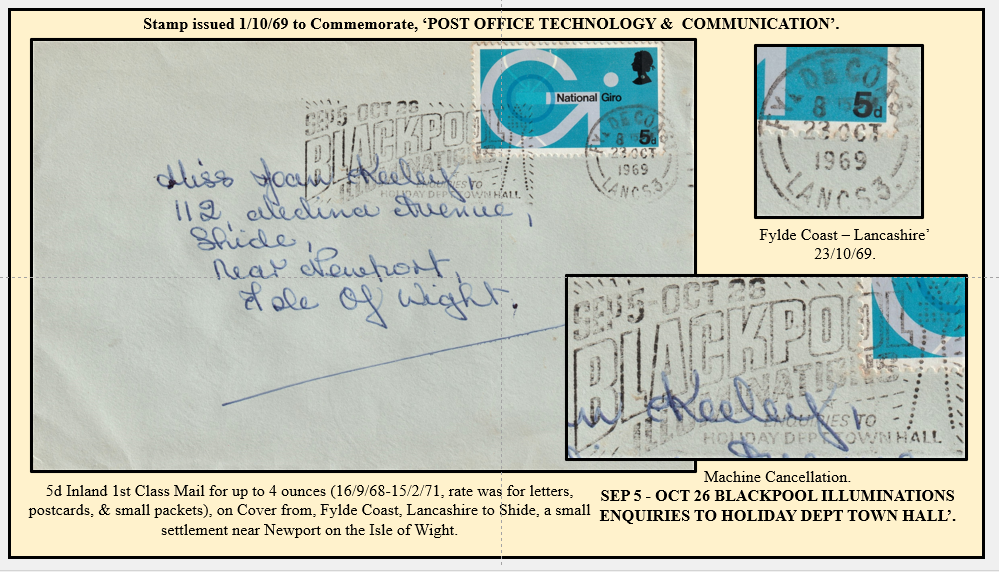 Stamp issued 1/10/69 to Commemorate, ‘POST OFFICE TECHNOLOGY & COMMUNICATION’.
National Giro
5d
SEP 5-OCT 26
BLACKPOOL
ILLUMINATIONS
ENQUIRIES TO
HOLIDAY DEPT TOWN HALL
FYLDE COAST
8
23 OCT
1969
LANCS. 3
Miss Joan Keeley,
112, Medina Avenue,
Shide,
Near Newport,
Isle Of Wight.
5d
DE CO
8
23 OCT
1969
LANCS. 3
Fylde Coast – Lancashire’
23/10/69.
SEP 5-OCT 26
BLACKPOOL
ILLUMINATIONS
Keeley,
ENQUIRIES TO
HOLIDAY DEPT TOWN HALL
Machine Cancellation.
SEP 5 - OCT 26 BLACKPOOL ILLUMINATIONS
ENQUIRIES TO HOLIDAY DEPT TOWN HALL’.
5d Inland 1st Class Mail for up to 4 ounces (16/9/68-15/2/71, rate was for letters,
postcards, & small packets), on Cover from, Fylde Coast, Lancashire to Shide, a small
settlement near Newport on the Isle of Wight.